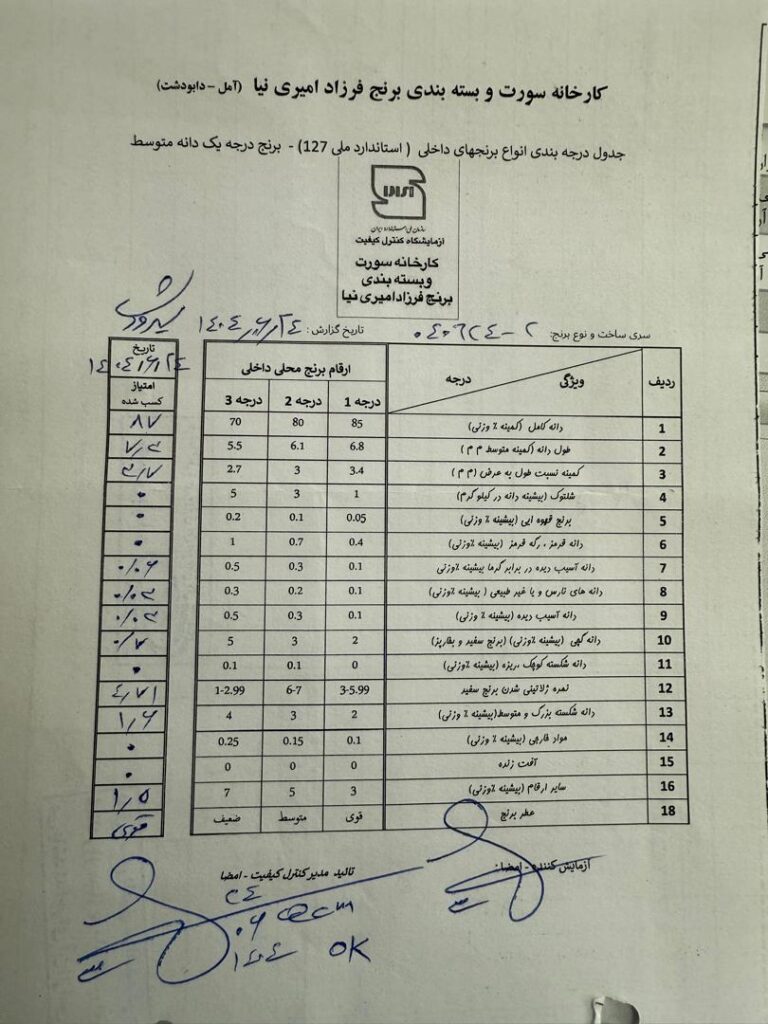 کارخانه سورت و بسته بندی برنج فرزاد امیری نیا (آمل - دابودشت)
جدول درجه بندی انواع برنجهای داخلی ( استاندارد ملی 127) - برنج درجه یک دانه متوسط
آزمایشگاه کنترل کیفیت
کارخانه سورت
وبسته بندی
برنج فرزادامیری نیا
سری ساخت و نوع برنج: ۰۴۰۶۲۴-۲ تاریخ گزارش: ۱۴۰۴/۶/۲۴
ردیف ویژگی درجه ارقام برنج محلی داخلی تاریخ
درجه 1 درجه 2 درجه 3 ۱۴۰۴/۶/۲۴
امتیاز
کسب شده
1 دانه کامل (کمینه ٪ وزنی) 85 80 70 ۸۷
2 طول دانه (کمینه متوسط م م) 6.8 6.1 5.5 ۷/۲
3 کمینه نسبت طول به عرض (م م) 3.4 3 2.7 ۳/۷
4 شلتوک (بیشینه دانه در کیلو گرم) 1 3 5 ۰
5 برنج قهوه ایی (بیشینه ٪ وزنی) 0.05 0.1 0.2 ۰
6 دانه قرمز ، رگه قرمز (بیشینه ٪وزنی) 0.4 0.7 1 ۰
7 دانه آسیب دیده در برابر گرما بیشینه ٪وزنی) 0.1 0.3 0.5 ۰/۰۶
8 دانه های نارس و یا غیر طبیعی ( بیشینه ٪وزنی) 0.1 0.2 0.3 ۰/۰۳
9 دانه آسیب دیده (بیشینه ٪ وزنی) 0.1 0.3 0.5 ۰/۰۳
10 دانه گچی (بیشینه ٪وزنی) (برنج سفید و بخارپز) 2 3 5 ۰/۷
11 دانه شکسته کوچک ،ریزه (بیشینه ٪وزنی) 0 0.1 0.1 ۰
12 نمره ژلاتینی شدن برنج سفید 3-5.99 6-7 1-2.99 ۴/۷۱
13 دانه شکسته بزرگ و متوسط(بیشینه ٪ وزنی) 2 3 4 ۱/۶
14 مواد خارجی (بیشینه ٪ وزنی) 0.1 0.15 0.25 ۰
15 آفت زنده 0 0 0 ۰
16 سایر ارقام (بیشینه ٪وزنی) 3 5 7 ۱/۵
18 عطر برنج قوی متوسط ضعیف قوی
آزمایش کننده - امضا: تائید مدیر کنترل کیفیت - امضا
۲۴
۰۶ QCM
۱۴۰۴ OK